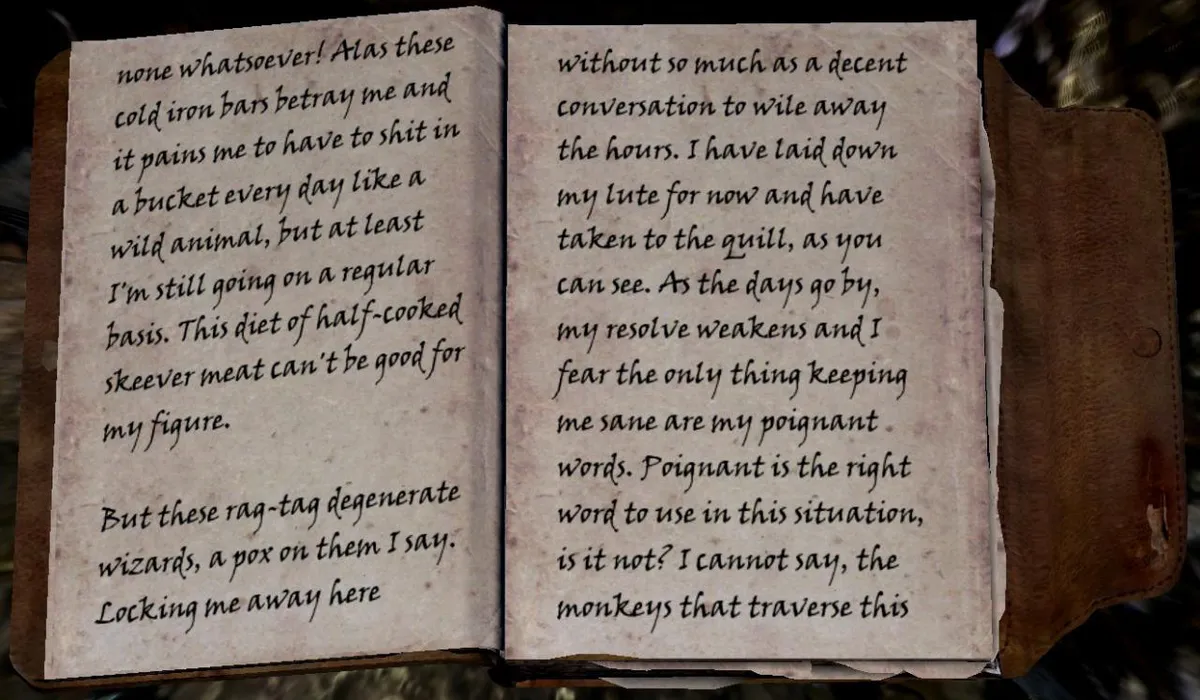 none whatsoever! Alas these
cold iron bars betray me and
it pains me to have to shit in
a bucket every day like a
wild animal, but at least
I'm still going on a regular
basis. This diet of half-cooked
skeever meat can't be good for
my figure.
But these rag-tag degenerate
wizards, a pox on them I say.
Locking me away here
without so much as a decent
conversation to wile away
the hours. I have laid down
my lute for now and have
taken to the quill, as you
can see. As the days go by,
my resolve weakens and I
fear the only thing keeping
me sane are my poignant
words. Poignant is the right
word to use in this situation,
is it not? I cannot say, the
monkeys that traverse this